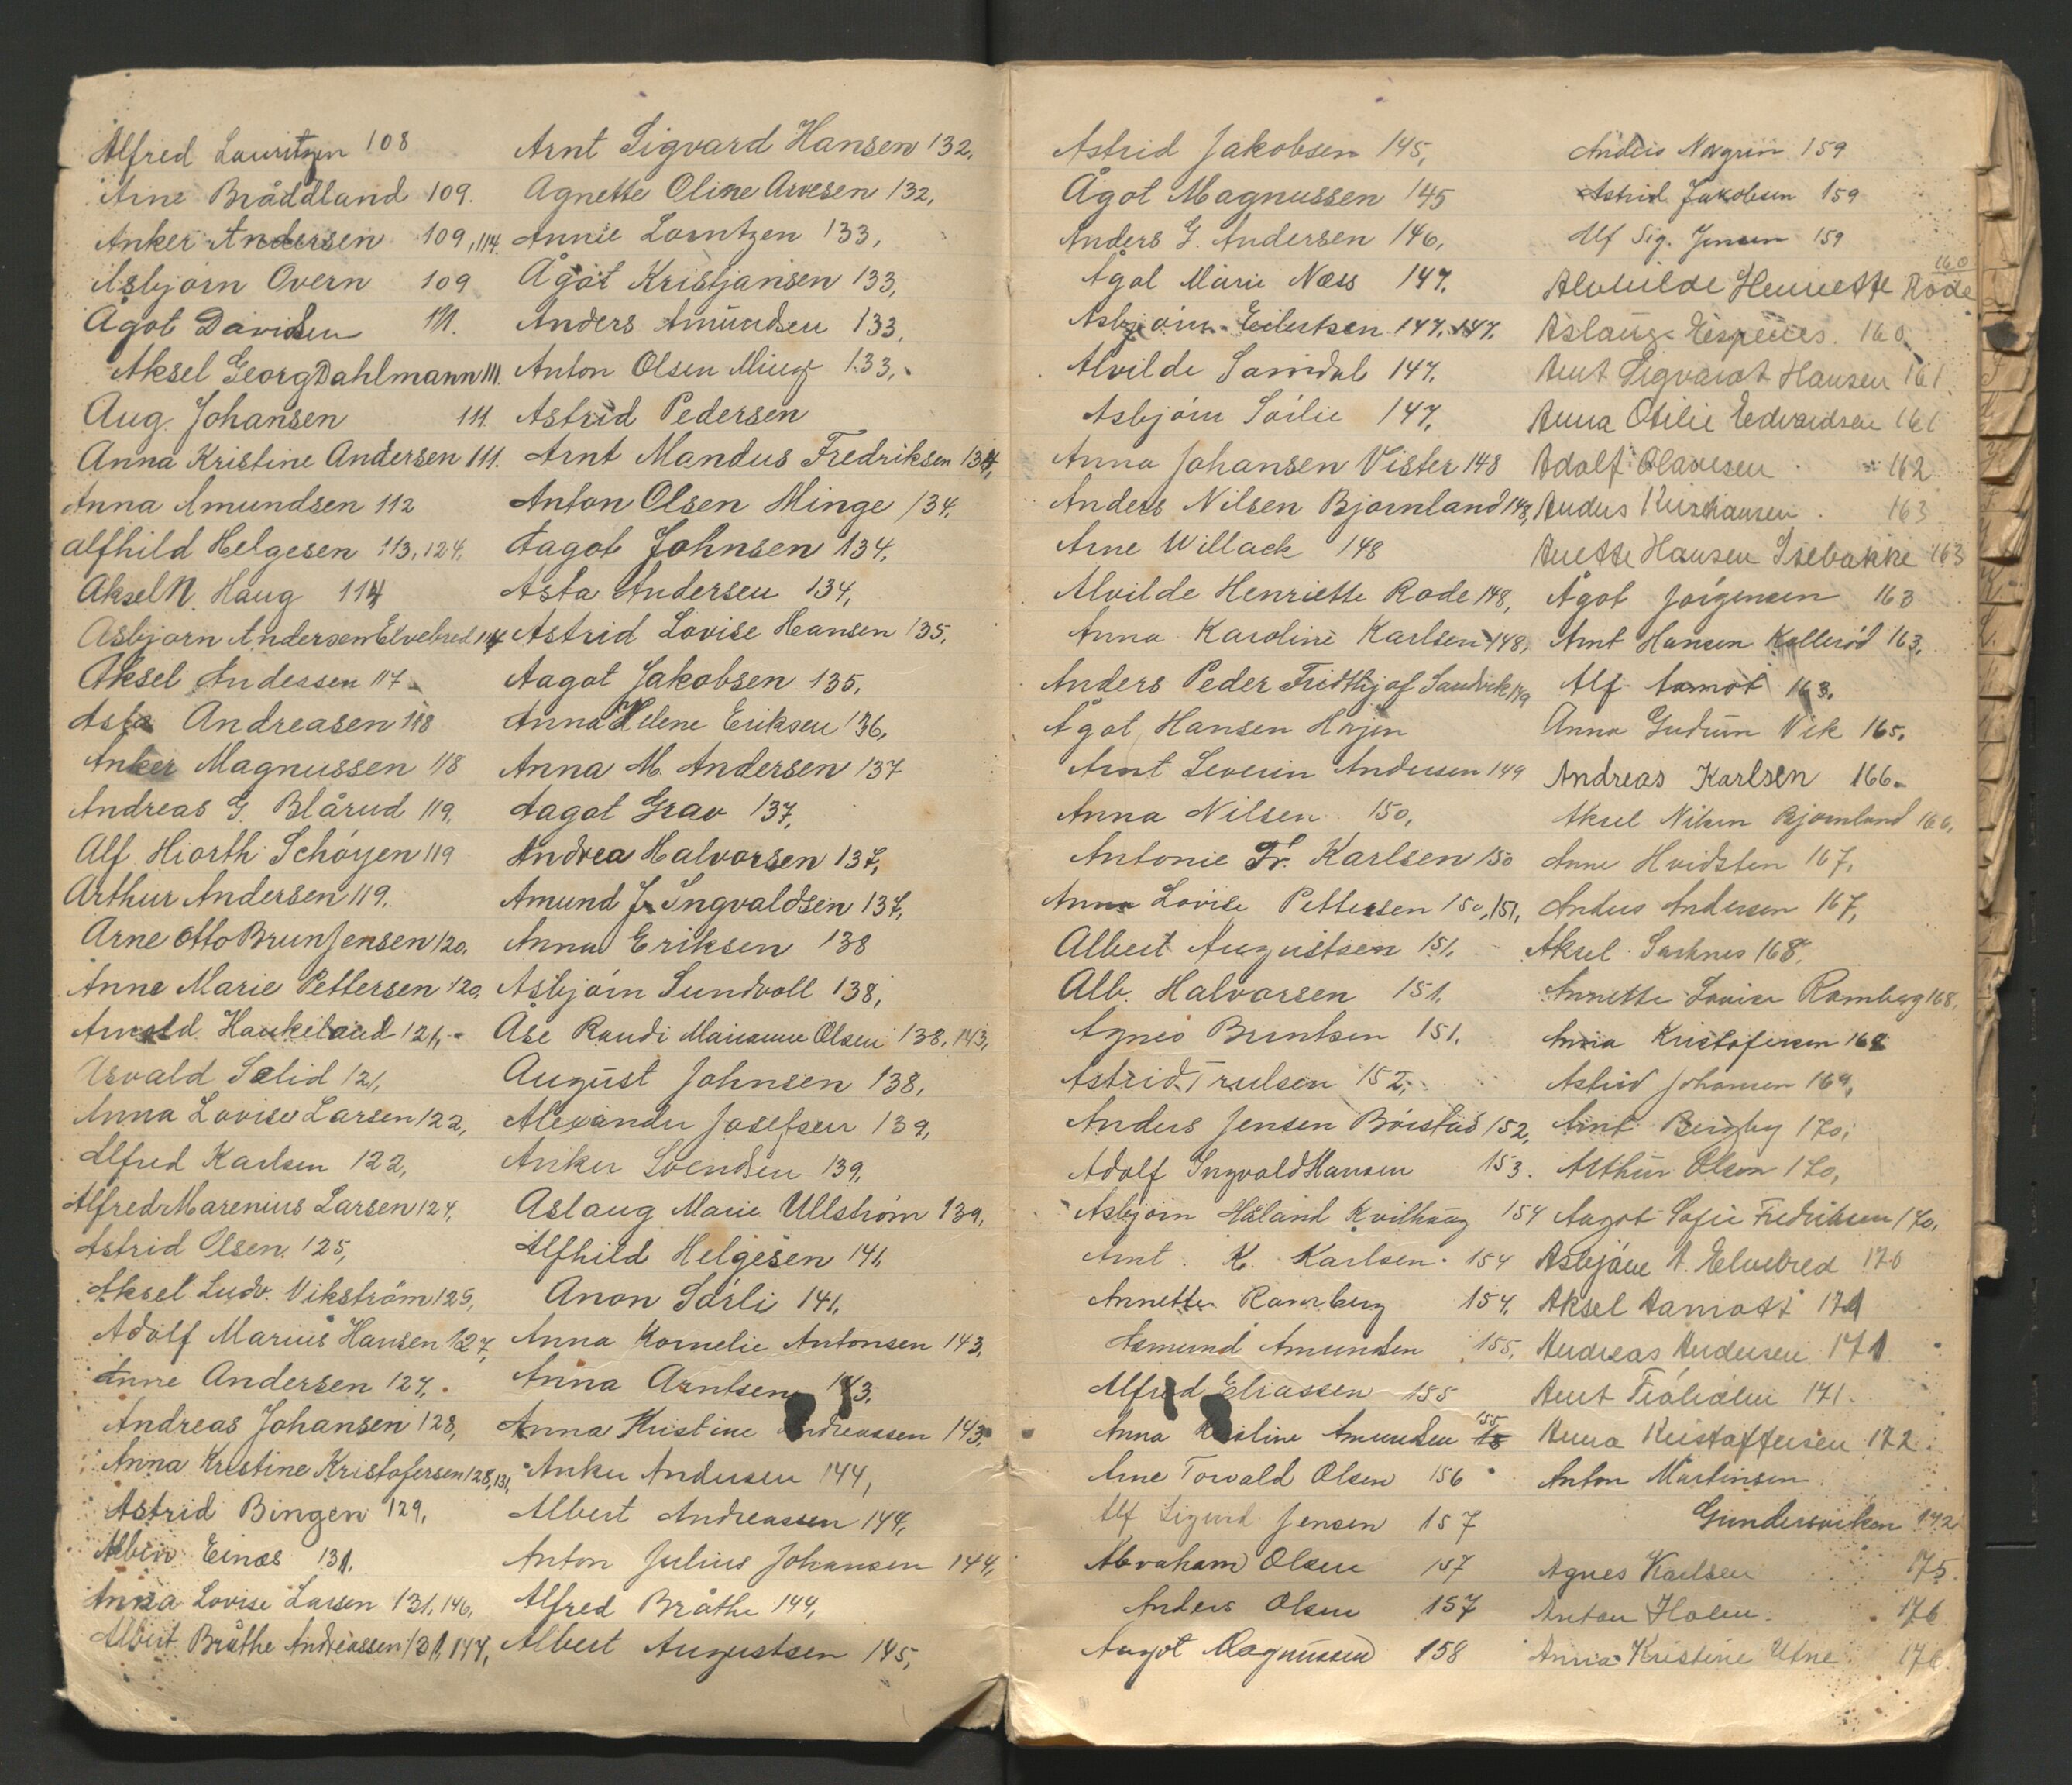 Alfred Lauritzen 108
Arne Bråddland 109.
Anker Andersen 109, 114.
Asbjørn Overn 109
Ågot Davidsen 111.
Aksel Georg Dahlmann 111.
Aug. Johansen 111.
Anna Kristine Andersen 111.
Anna Amundsen 112
Alfhild Helgesen 113, 124.
Aksel N. Haug 114
Asbjørn Andersen Elvebred 114
Aksel Andessen 117
Asta Andreasen 118
Anker Magnussen 118
Andreas G. Blårud 119.
Alf Hiorth Schøyen 119
Arthur Andersen 119.
Arne Otto Brun Jensen 120.
Anne Marie Pettersen 120.
Arnold Haukeland 121,
Asvald Solid 121,
Anna Lovise Larsen 122,
Alfred Karlsen 122,
Alfred Marenius Larsen 124,
Astrid Olsen. 125,
Aksel Ludv. Vikström 125,
Adolf Marius Hansen 127,
Anne Andersen 127,
Andreas Johansen 128,
Anna Kristine Kristofersen 128, 131,
Astrid Bingen 129,
Albin Einæs 131.
Anna Lovise Larsen 131, 146,
Albert Bråthe Andreassen 131, 144,
Arnt Sigvard Hansen 132,
Agnette Oline Arvesen 132,
Annie Lorntzen 133,
Ågot Kristjansen 133,
Anders Amundsen 133,
Anton Olsen Minge 133,
Astrid Pedersen
Arnt Mandus Fredriksen 134,
Anton Olsen Minge 134,
Aagot Johnsen 134,
Asta Andersen 134,
Astrid Lovise Hansen 135,
Aagot Jakobsen 135,
Anna Helene Eriksen 136,
Anna M. Andersen 137
Aagot Grav 137,
Andrea Halvorsen 137,
Amund J. Ingvaldsen 137,
Anna Eriksen 138
Asbjørn Sundvoll 138,
Åse Randi Marianne Olsen 138, 143,
August Johnsen 138,
Alexander Josefsen 139,
Anker Svendsen 139,
Aslaug Marie Ullstrøm 139,
Alfhild Helgesen 141,
Anon Sørli 141,
Anna Kornelie Antonsen 143,
Anna Arntsen 143,
Anna Kristine Andreassen 143,
Anker Andersen 144,
Albert Andreassen 144,
Anton Julius Johansen 144,
Alfred Bråthe 144,
Albert Augustsen 145,
Astrid Jakobsen 145,
Ågot Magnussen 145
Anders G. Andersen 146,
Ågot Marie Næss 147.
Asbjørn Eilertsen 147. 147.
Alvilde Sandal 147.
Asbjørn Sørlie 147.
Anna Johansen Vister 148
Anders Nilsen Bjørnland 148,
Arne Willack 148
Alvilde Henriette Rode 148,
Anna Karoline Karlsen 148,
Anders Peder Fridthjof Sandvik 149
Ågot Hansen
Arnt Severin Andersen 149
Anna Nilsen 150,
Antonie Fr. Karlsen 150
Anna Lovise Pettersen 150, 151,
Albert Augustsen 151.
Alb. Halvorsen 151.
Agnes Berntsen 151.
Astrid Trulsen 152,
Anders Jensen Børstad 152,
Adolf Ingvald Hansen 153.
Asbjørn Håland Kvilhaug 154
Arnt K. Karlsen 154
Annette Ramberg 154.
Asmund Amundsen 155.
Alfred Eliassen 155
Anna Kristine Amundsen 155
Arne Torvald Olsen 156
Alf Sigurd Jensen 157
Abraham Olsen 157
Anders Olsen 157
Aagot Magnussen 158
Anders Norgren 159
Astrid Jakobsen 159
Alf Sig. Jensen 159
Alvhilde Henriette Rode 160
Aslaug Espenes. 160
Arnt Sigvardt Hansen 161
Anna Otilie Edvardsen 161
Adolf Olavesen 162
Anders Kristiansen 163
Anette Hansen Isebakke 163
Ågot Jørgensen 163
Arnt Hansen Kallerød 163,
Alf Aamot 163.
Anna Gudrun Vik 165.
Andreas Karlsen 166.
Aksel Nilsen Bjørnland 166,
Anne Hvidsten 167,
Anders Andersen 167,
Aksel 168,
Annette Lovise Ramberg 168,
Anna Kristofersen 168
Astrid Johansen 169,
Arnt Bergby 170,
Arthur Olsen 170,
Aagot Sofie Fredriksen 170,
Asbjørn A. Elvebred 170
Aksel Aamodt 171
Andreas Andersen 171
Arnt Fjølholm 171.
Anna Kristoffersen 172.
Anton Martinsen
Gundersviken 172
Agnes Karlsen 175.
Anton Holm. 176
Anna Kristine Utne 176.